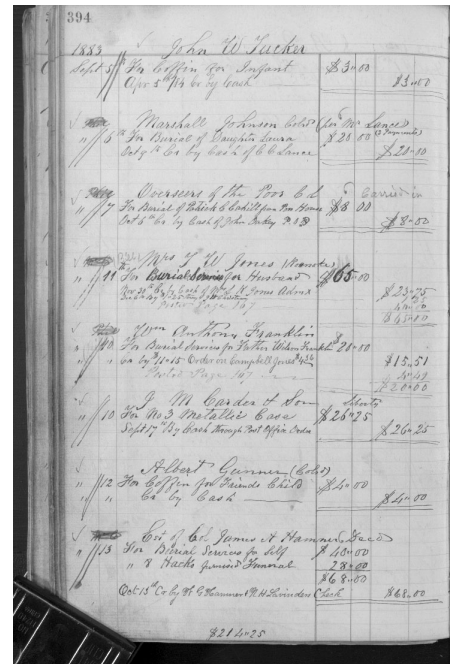 394
1883 John W Tucker
Sept 5 For Coffin for Infant $3-00
Apr 5th /84 Cr by Cash $3-00
Marshall Johnson Cold (for Mr Lance)
" 6 For Burial of Daughter Laura $20 00
Oct 9th Cr by Cash of C C Lance $20-00
Overseers of the Poor C L Carried in
" 7 For Burial of Patrick C Cahill from Poor House $8 00
Oct 6th Cr by Cash of John Oakey $8-00
Mrs T W Jones
" 11 For Burial Services for Husband $65-00
$23-75
$45-00
Posted Page 107
Anthony Franklin
For Burial Services for Father Wilson Franklin $20-00
Cr by 11-15 Order on Campbell Jones $15,51
4-49
Posted Page 107 $20-00
J M Carder & Son Liberty
" 10 For No 3 Metallic Case $26-25
Sept 17th By Cash through Post Office Order $26-25
Albert Gunner (Cold)
" 12 For Coffin for Friends Child $4-00
" " Cr by Cash $4-00
Col James A Hamner Decd
" 13 For Burial Services for Self $40-00
" 8 Hacks furnished Funeral 28-00
$68-00
Oct 15th Cr by W G Hamner & R H Lavinder Check $68-00
$214-25